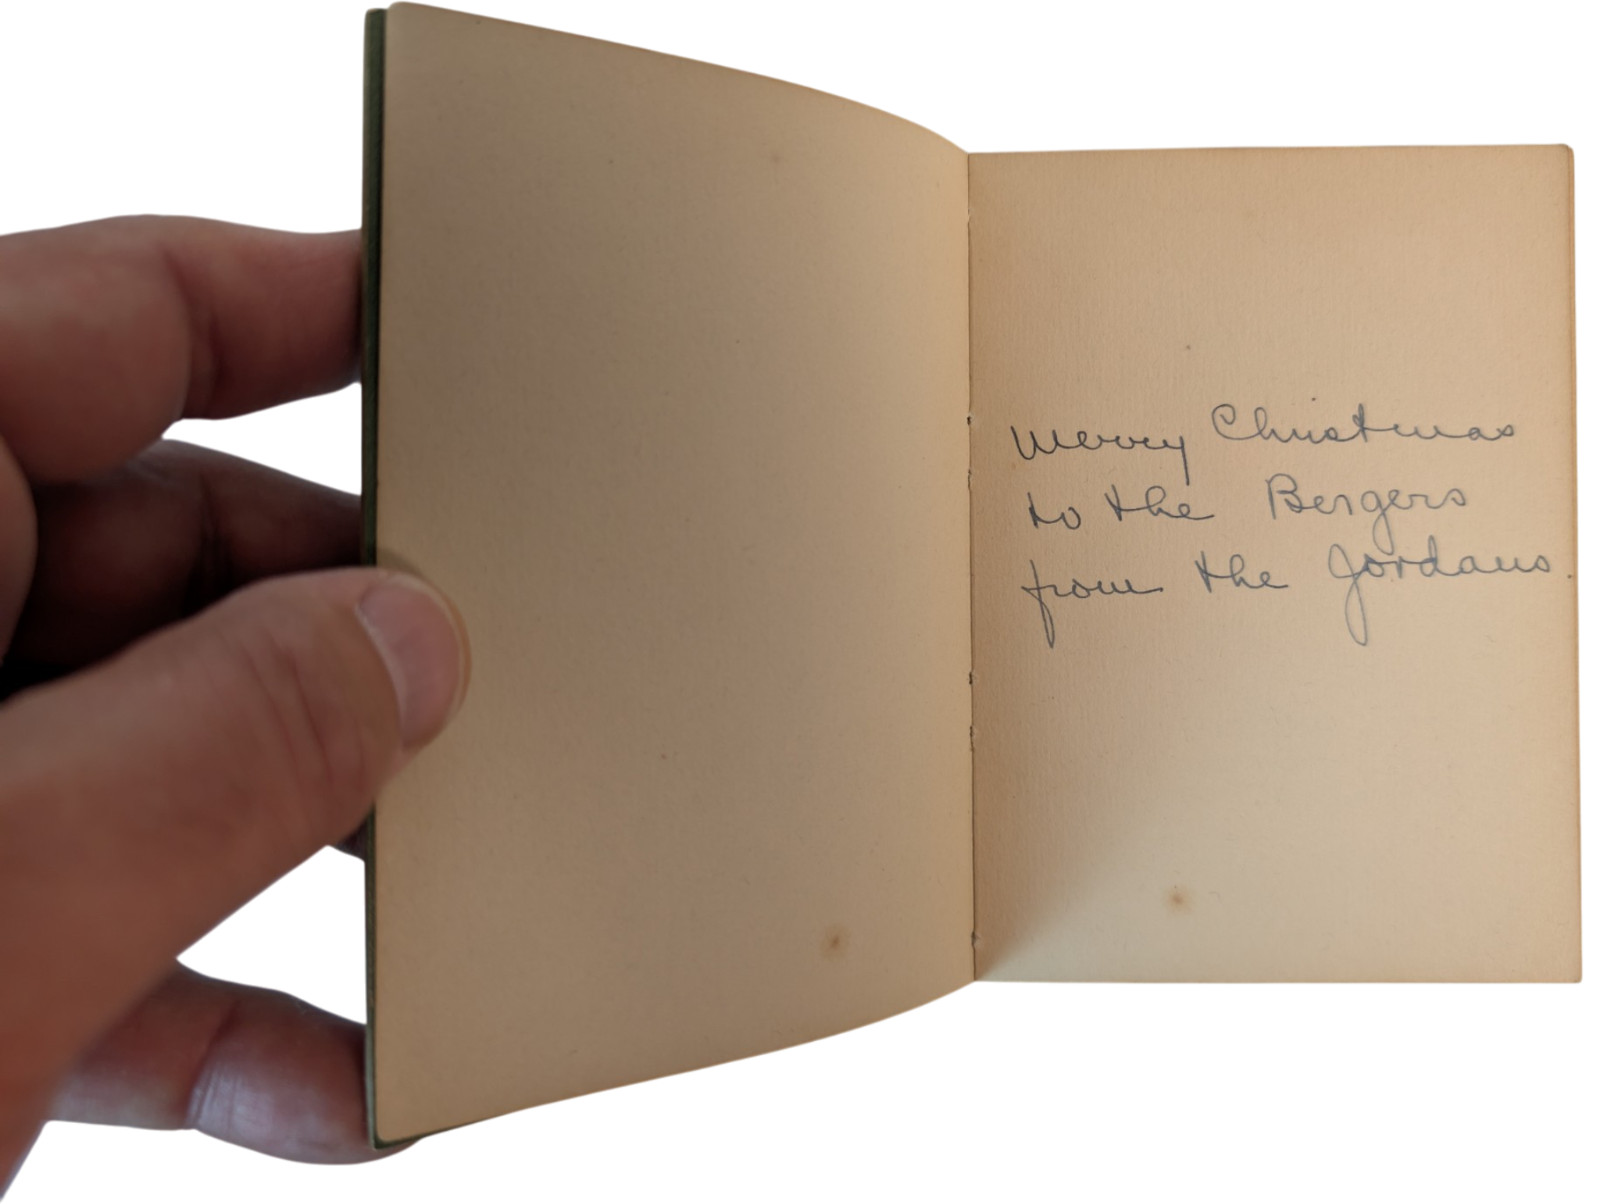 Merry Christmas
to the Bergers
from the Jordans